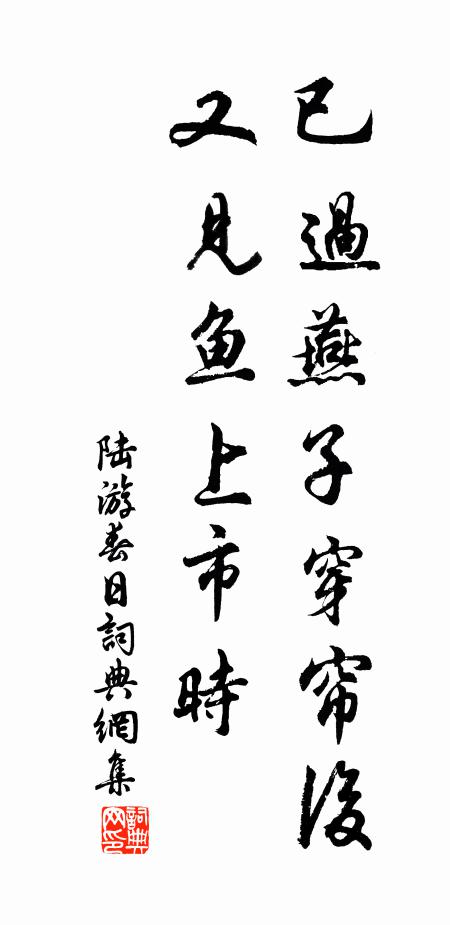 已過燕子穿帘後
又見鱼上市時
陆游春日詞典網集
詞典网印